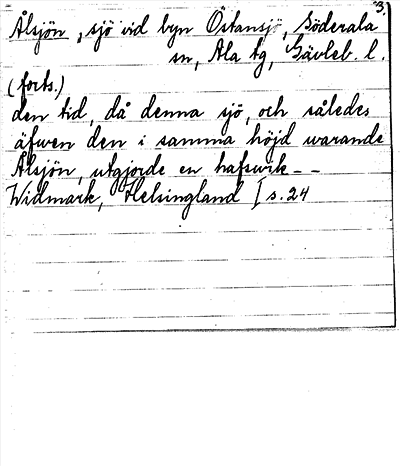 3.
Ålsjön, sjö vid byn Östansjö, Söderala
sn, Ala tg, Gävleb. l.
(forts.)
den tid, då denna sjö, och således
äfwen den i samma höjd warande
Ålsjön, utgjorde en hafswik - -
Widmark, Helsingland I s. 24